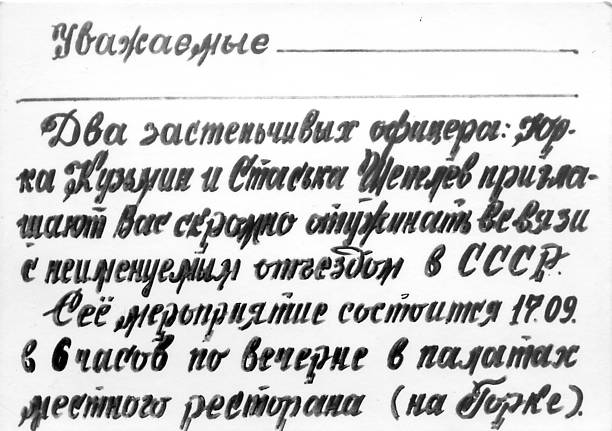 Уважаемые
Два застенчивых офицера: Юр-
ка Кузьмин и Стаська Шепелёв пригла-
шают Вас скромно отужинать в связи
с неименуемым отъездом в СССР.
Сеё мероприятие состоится 17.09.
в 6 часов по вечерне в палатах
местного ресторана (на Горке).